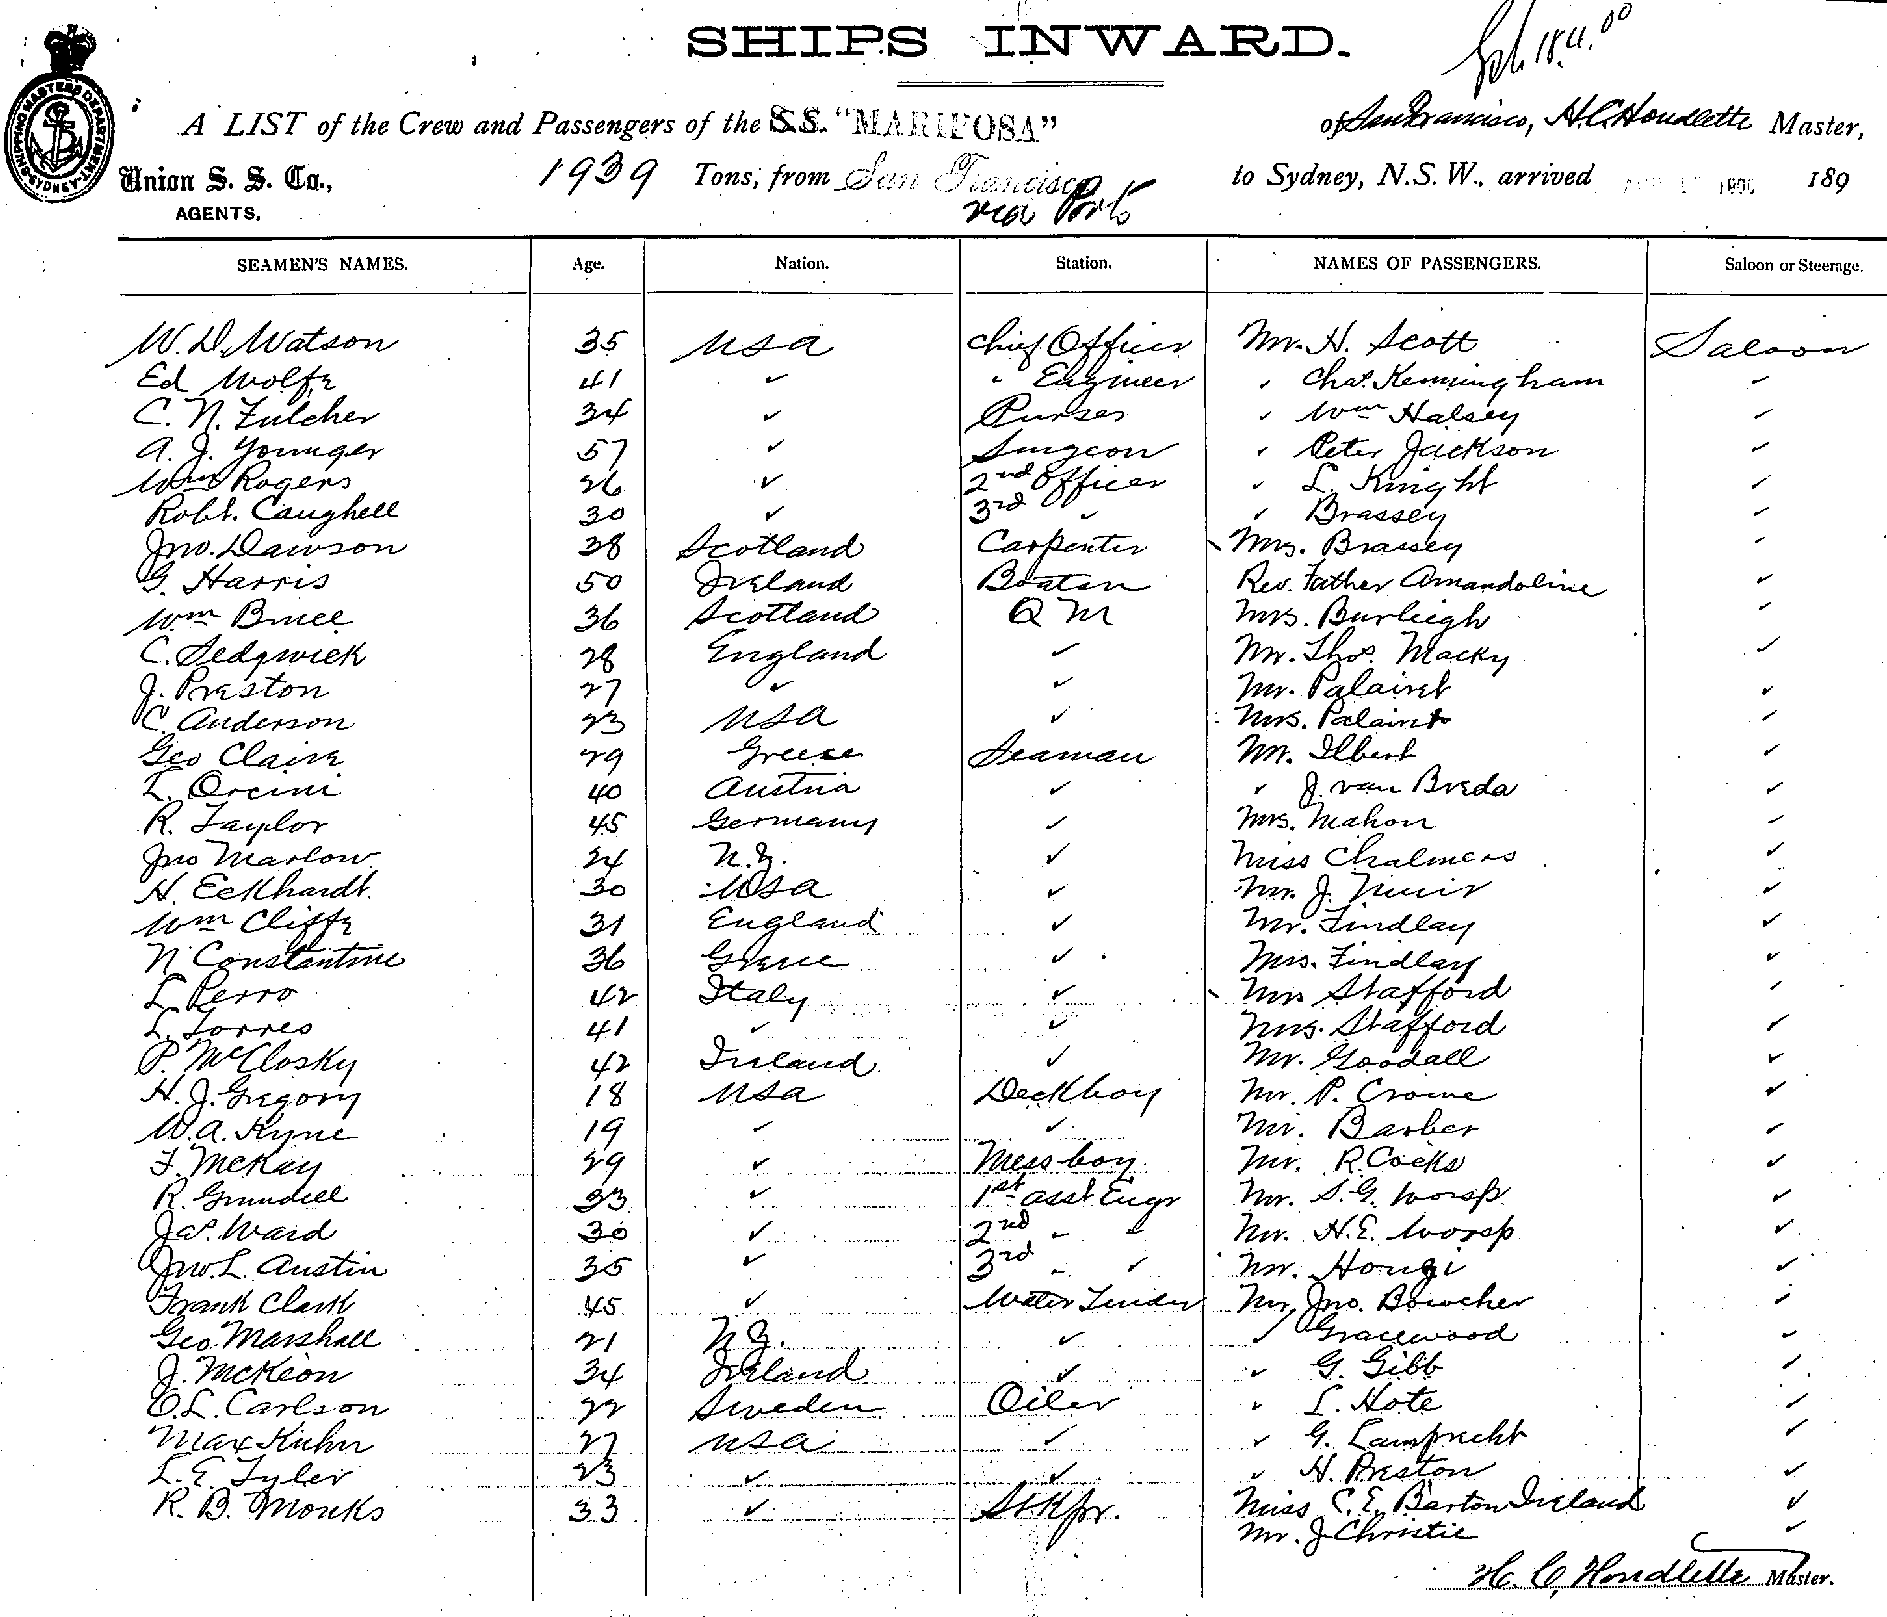 SHIPS INWARD.
A LIST of the Crew and Passengers of the S.S. "MARIPOSA" of San Francisco, H.C. Houdlette Master,
Union S. S. Co., 1939 Tons, from San Francisco to Sydney, N.S.W., arrived 189
AGENTS. via Ports
SEAMEN'S NAMES. Age. Nation. Station. NAMES OF PASSENGERS. Saloon or Steerage.
W. D. Watson 35 USA Chief Officer Mr. H. Scott Saloon
Ed Wolfe 41 ✓ " Engineer ✓ Chas. Kenningham ✓
C. N. Fulcher 34 ✓ Purser ✓ Wm Halsey ✓
A. J. Younger 57 ✓ Surgeon ✓ Peter Jackson ✓
Wm Rogers 26 ✓ 2nd Officer ✓ L. Knight ✓
Robt. Caughell 30 ✓ 3rd ✓ ✓ Brassey ✓
Jno. Dawson 38 Scotland Carpenter Mrs. Brassey ✓
G. Harris 50 Ireland Boatsn Rev. Father Amandoline ✓
Wm Bruce 36 Scotland Q M Mrs. Burleigh ✓
C. Sedgwick 28 England ✓ Mr. Thos. Macky ✓
J. Preston 27 ✓ ✓ Mr. Palairet ✓
C. Anderson 23 USA ✓ Mrs. Palairet ✓
Geo Claire 29 Greese Seaman Mr. Ilbert ✓
L. Orcini 40 Austria ✓ ✓ J. van Breda ✓
R. Taylor 45 Germany ✓ Mrs. Mahon ✓
Jno Marlow 24 N.Z. ✓ Miss Chalmers ✓
H. Eckhardt. 30 USA ✓ Mr. J. Muir ✓
Wm Cliffe 31 England ✓ Mr. Findlay ✓
N Constantine 36 Greece ✓ Mrs. Findlay ✓
L. Perro 42 Italy ✓ Mr Stafford ✓
L. Torres 41 ✓ ✓ Mrs. Stafford ✓
P. McClosky 42 Ireland ✓ Mr. Goodall ✓
H. J. Gregory 18 USA Deckboy Mr. P. Crowe ✓
W. A. Kyne 19 ✓ ✓ Mr. Barber ✓
F. McKay 29 ✓ Messboy Mr. R. Cocks ✓
R. Grundell 33 ✓ 1st asst Engr Mr. S. G. Worsp ✓
Jas. Ward 30 ✓ 2nd " " Mr. H. E. Worsp ✓
Jno. L. Austin 35 ✓ 3rd " ✓ Mr. Hongi ✓
Frank Clark 45 ✓ Water Tender Mr. Jno. Bowcher ✓
Geo Marshall 21 N.Z. ✓ ✓ Gracewood ✓
J. McKeon 34 Ireland ✓ ✓ G. Gibb ✓
O. L. Carlson 22 Sweden Oiler ✓ L. Hote ✓
Max Kuhn 27 USA ✓ ✓ G. Lamprecht ✓
L. E. Tyler 23 ✓ ✓ ✓ H. Preston ✓
R. B. Monks 33 ✓ Stkpr. Miss C. E. Barton Ireland ✓
Mr. J Christie ✓
H. C. Houdlette Master.